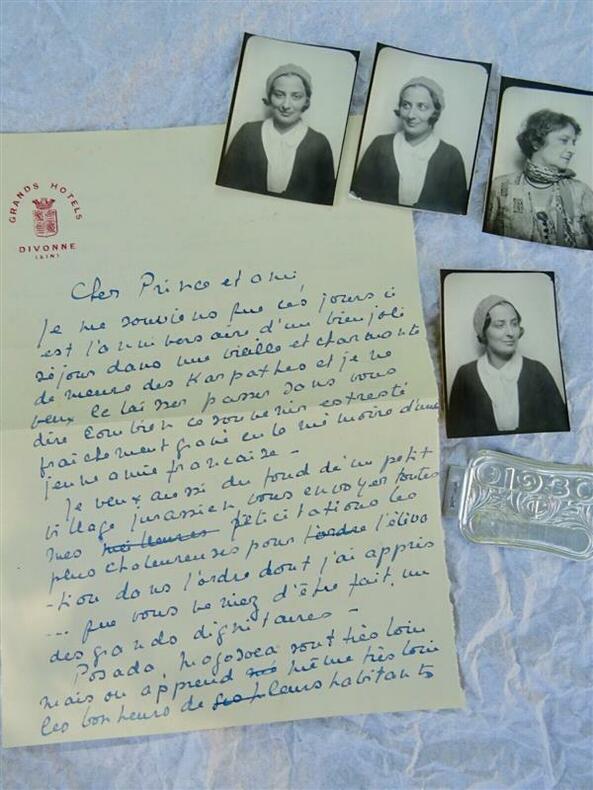 GRANDS HOTELS
DIVONNE
(AIN)
Cher Prince et ami
Je me souviens que ces jours ci
est l'anniversaire d'un bien joli
séjour dans une vieille et charmante
demeure des Karpathes et je ne
veux le laisser passer sans vous
dire combien ce souvenir est resté
fraîchement gravé en la mémoire d'une
jeune amie française -
Je veux aussi du fond de un petit
village jurassien vous envoyer toutes
mes meilleures félicitations les
plus chaleureuses pour l'ordre l'éleva
-tion dans l'ordre dont j'ai appris
... que vous venez d'être fait un
des grands dignitaires -
Posada, Mogosoea sont très loin
mais on apprend même très loin
les bonheurs de leurs habitants
1930